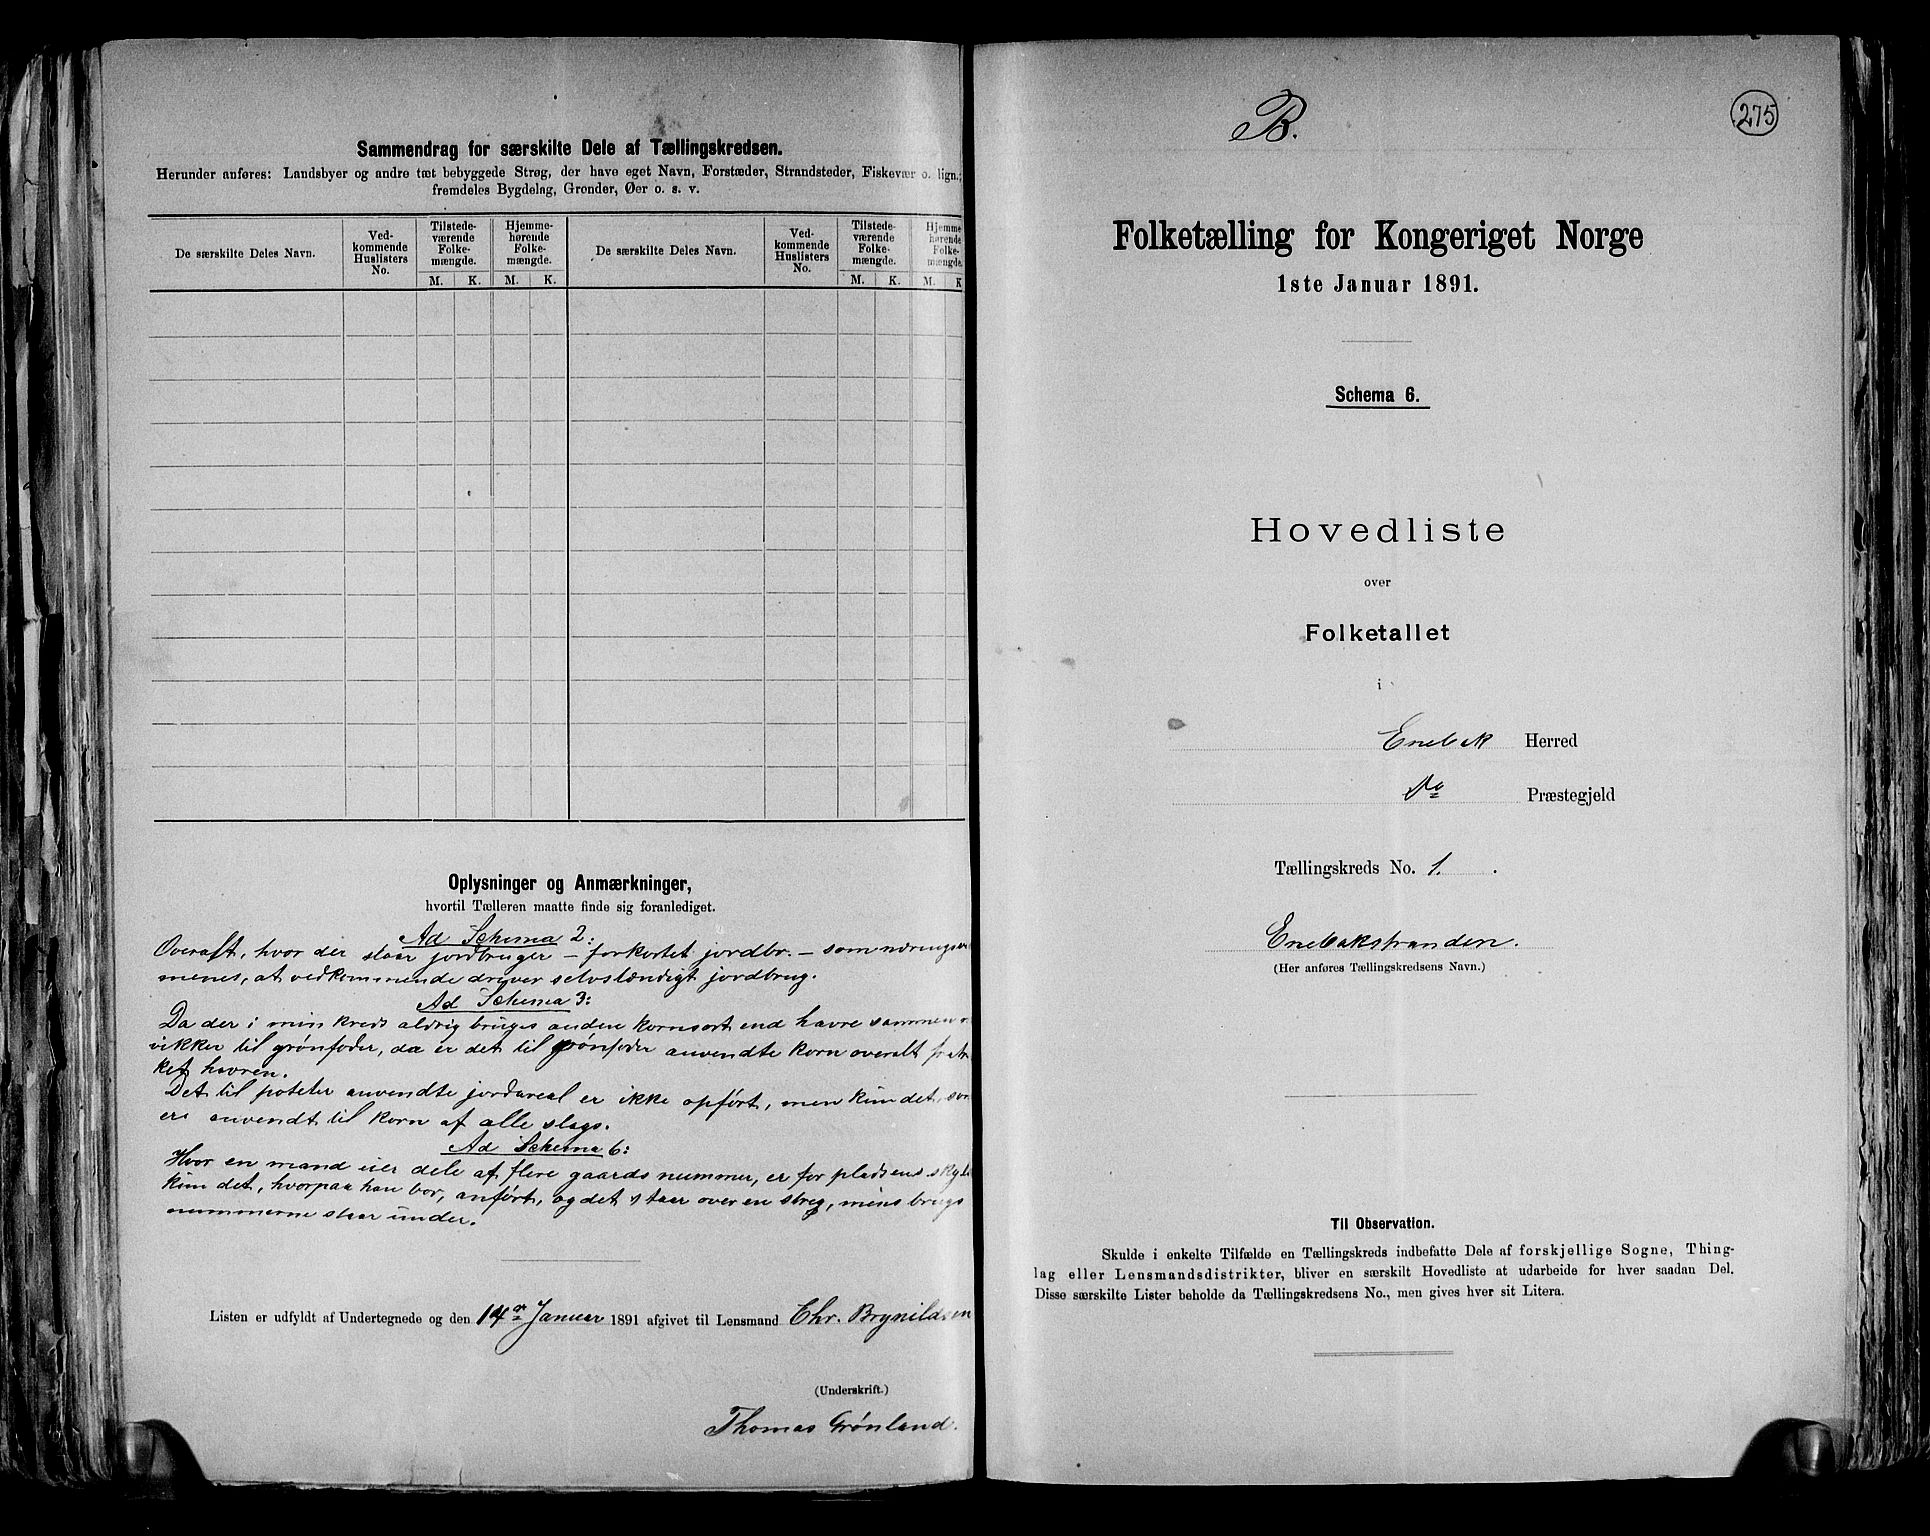 Sammendrag for særskilte Dele af Tællingskredsen.
Herunder anføres: Landsbyer og andre tæt bebyggede Strøg, der have eget Navn, Forstæder, Strandsteder, Fiskevær o. lign.;
fremdeles Bygdelag, Grender, Øer o. s. v.
De særskilte Deles Navn.
Ved-
kommende
Huslisters
No.
Tilstede-
værende
Folke-
mængde.
Hjemme-
hørende
Folke-
mængde.
De særskilte Deles Navn.
Ved-
kommende
Huslisters
No.
Tilstede-
værende
Folke-
mængde.
Hjemme
hørende
Folke-
mængde.
M. K. M. K. M. K. M. K
Oplysninger og Anmærkninger,
hvortil Tælleren maatte finde sig foranlediget.
Ad Schema 2:
Overalt, hvor der staar jordbruger – forkortet jordbr. – som næringsv
menes, at vedkommende driver selvstændigt jordbrug.
Ad Schema 3:
Da der i min kreds aldrig bruges anden kornsort end havre sammen
vikker til grønfoder, da er det til grønfoder anvendte korn overalt fratr
ket havren.
Det til poteter anvendte jordareal er ikke opført, men kun det, som
er anvendt til korn af alle slags.
Ad Schema 6:
Hvor en mand eier dele af flere gaards nummer, er for pladsens skyld
kun det, hvorpaa han bor, anført, og det staar over en streg, mens brugs
nummerne staar under.
Listen er udfyldt af Undertegnede og den 14de Januar 1891 afgivet til Lensmand Chr. Brynildsen
(Underskrift.)
Thomas Grönland.
B.
275
Folketælling for Kongeriget Norge
1ste Januar 1891.
Schema 6.
Hovedliste
over
Folketallet
i
Enebak Herred
Do Præstegjeld
Tællingskreds No. 1.
Enebakstranden.
(Her anføres Tællingskredsens Navn.)
Til Observation.
Skulde i enkelte Tilfælde en Tællingskreds indbefatte Dele af forskjellige Sogne, Thing-
lag eller Lensmandsdistrikter, bliver en særskilt Hovedliste at udarbeide for hver saadan Del.
Disse særskilte Lister beholde da Tællingskredsens No., men gives hver sit Litera.